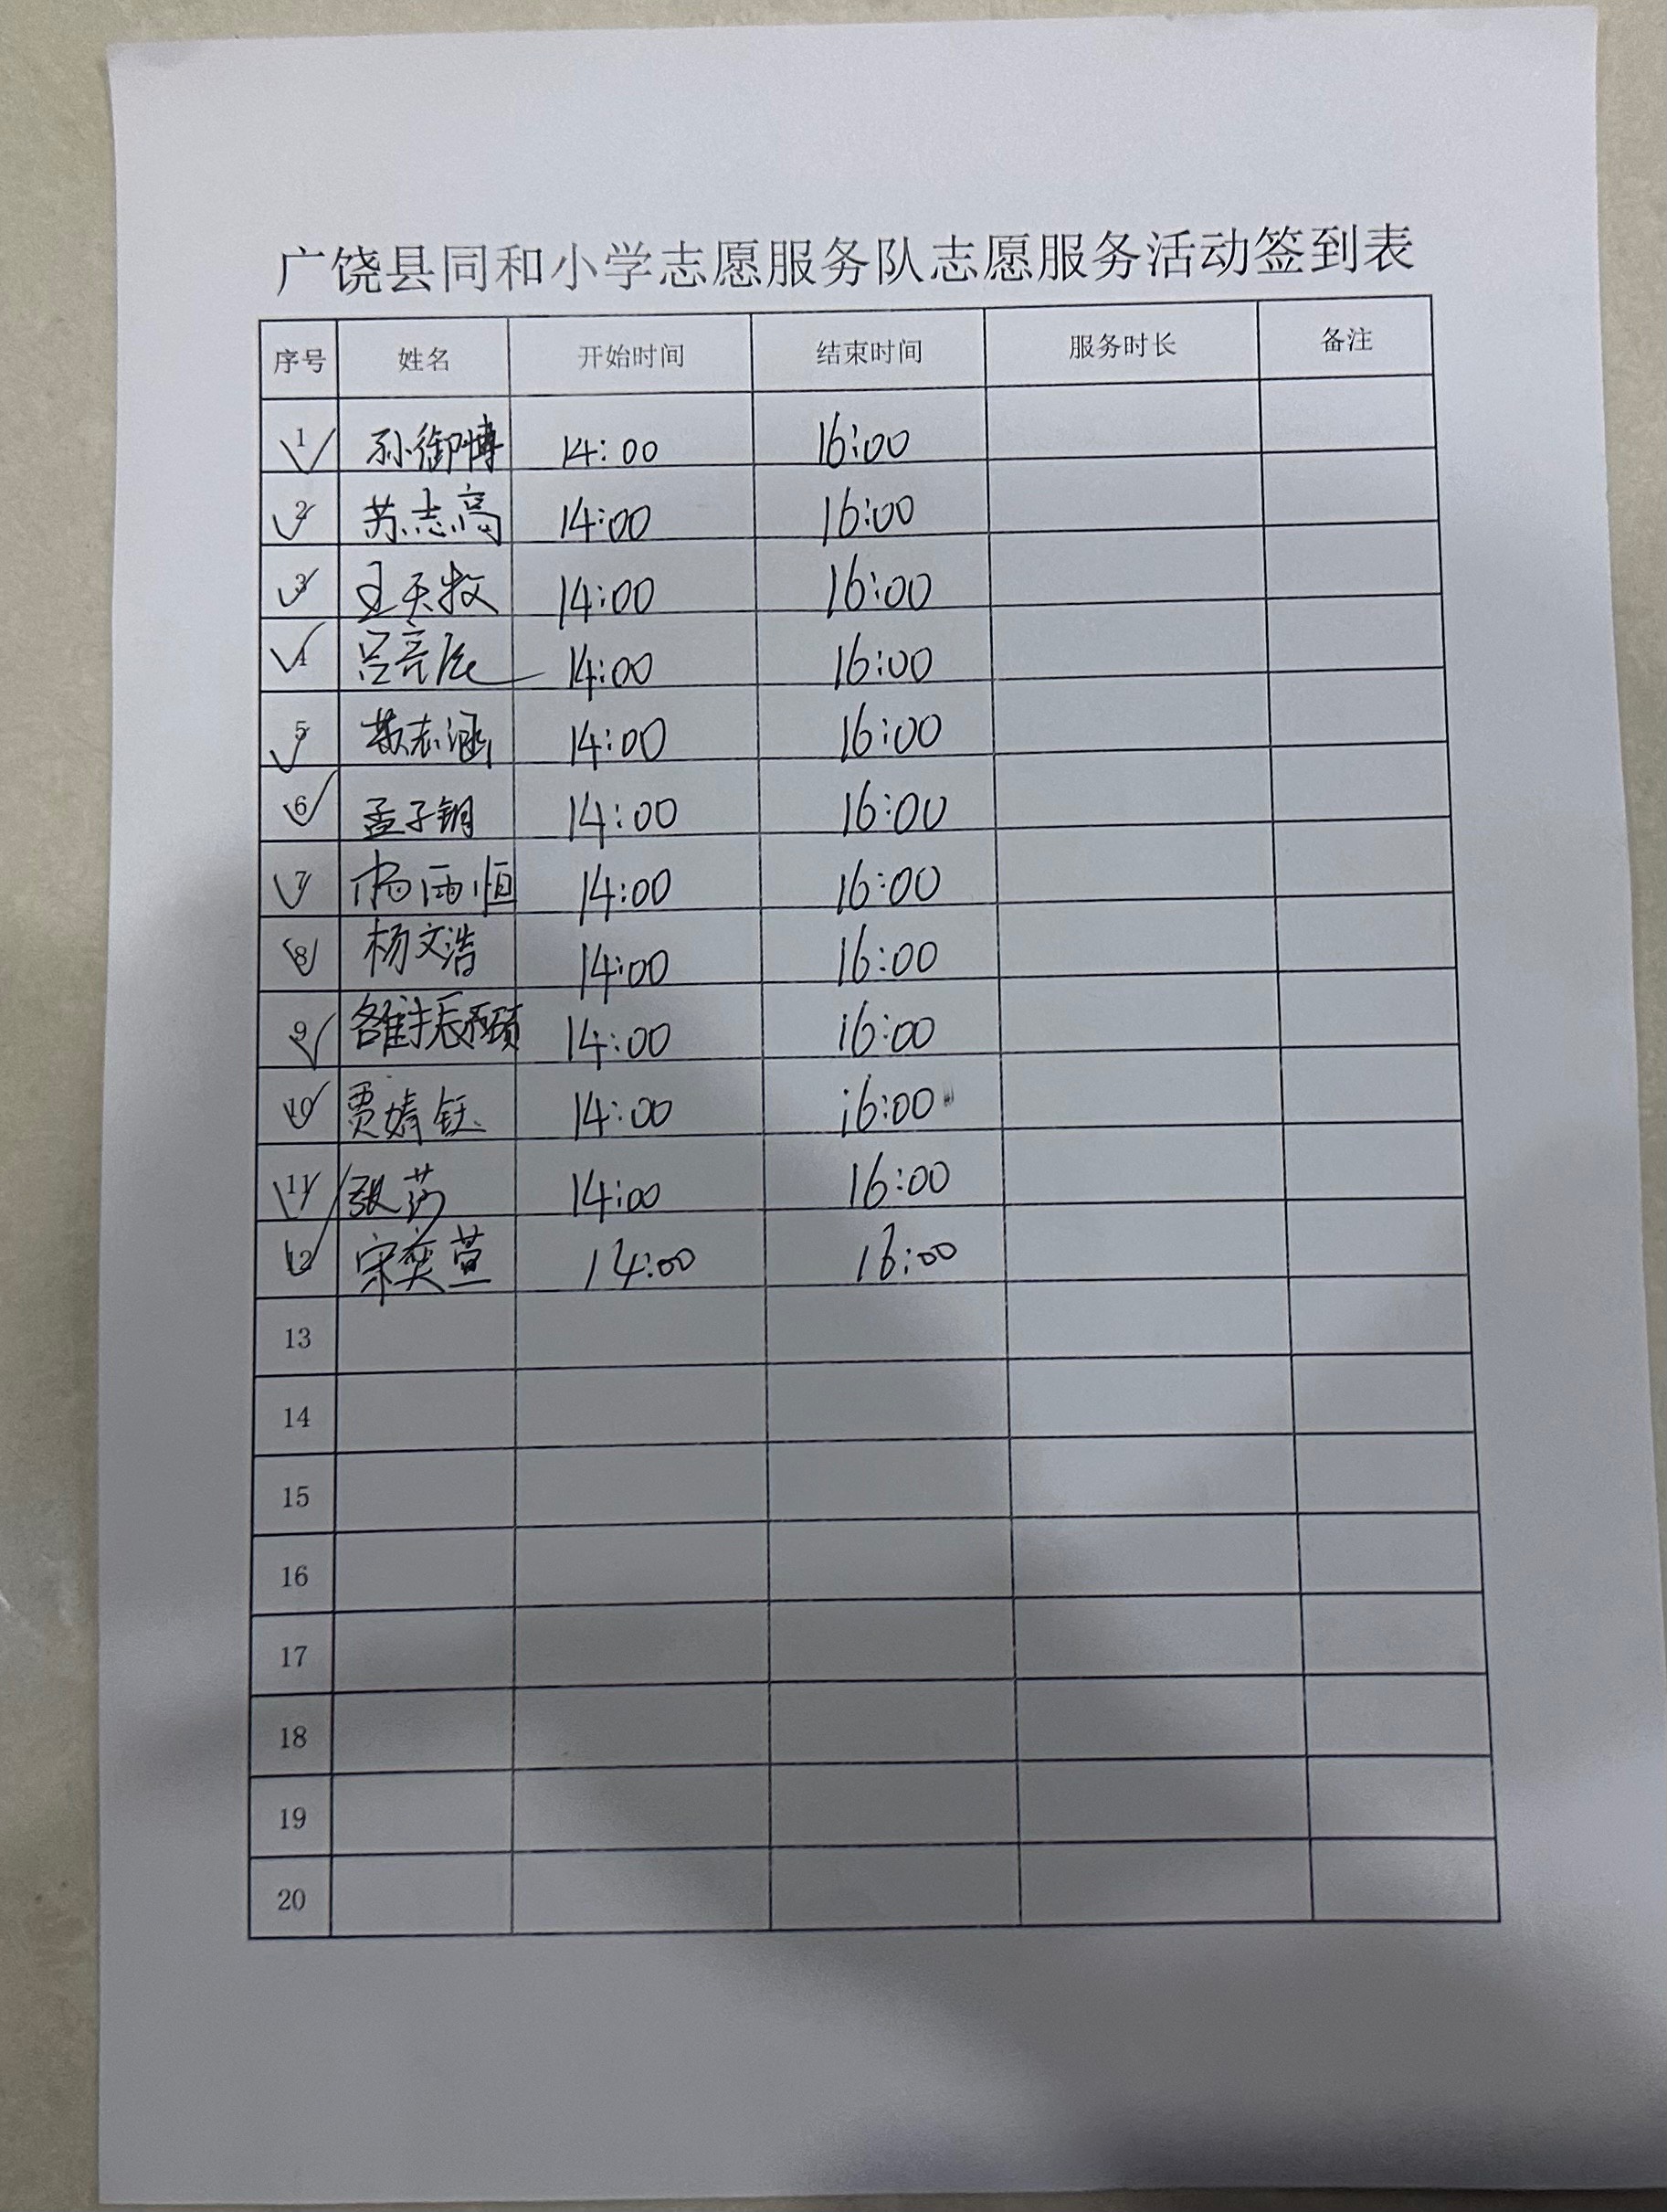 广饶县同和小学志愿服务队志愿服务活动签到表
序号 姓名 开始时间 结束时间 服务时长 备注
1 孙御博 14:00 16:00
2 苏志高 14:00 16:00
3 王天牧 14:00 16:00
4 吕亮辰 14:00 16:00
5 志涵 14:00 16:00
6 孟子钥 14:00 16:00
7 杨雨恒 14:00 16:00
8 杨文浩 14:00 16:00
9 14:00 16:00
10 贾婧钰 14:00 16:00
11 张 14:00 16:00
12 宋奕萱 14:00 16:00
13
14
15
16
17
18
19
20